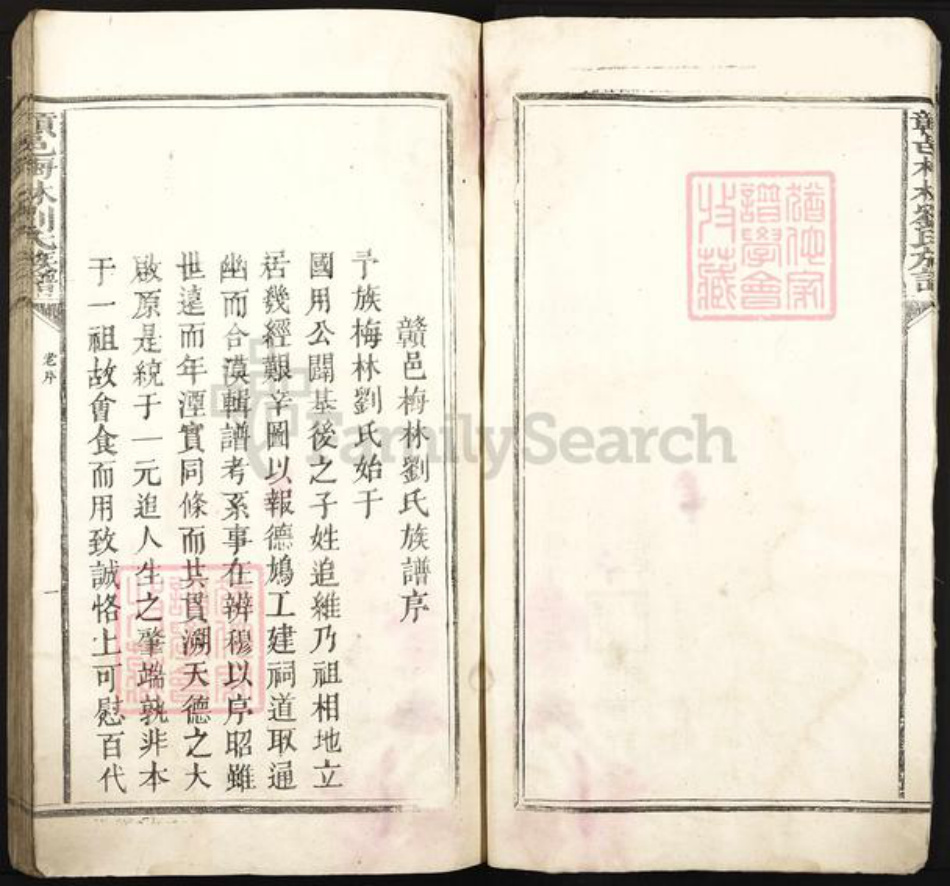 贛邑梅林劉氏族譜
猶他家
譜學會
收藏
贛邑梅林劉氏族譜序
予族梅林劉氏始于
國用公闢基後之子姓追維乃祖相地立
居幾經艱辛圖以報德鳩工建祠道取通
幽而合漠輯譜考系事在辨穆以序昭雖
世遠而年湮實同條而共貫溯天德之大
啟原是統于一元追人生之肇端孰非本
于一祖故會食而用致誠恪上可慰百代
贛邑梅林劉氏族譜
老序
一
FamilySearch